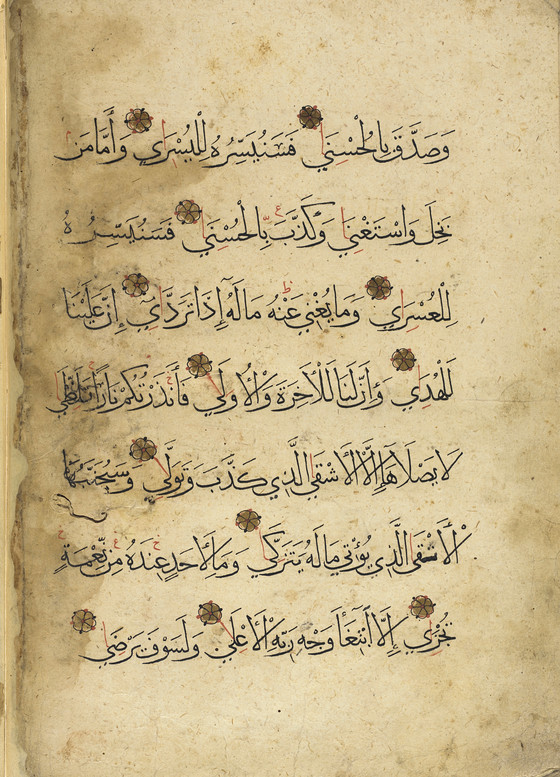 وَصَدَّقَ بِالْحُسْنَى فَسَنُيَسِّرُهُ لِلْيُسْرَى وَأَمَّا مَنْ
بَخِلَ وَاسْتَغْنَى وَكَذَّبَ بِالْحُسْنَى فَسَنُيَسِّرُهُ
لِلْعُسْرَى وَمَا يُغْنِي عَنْهُ مَالُهُ إِذَا تَرَدَّى إِنَّ عَلَيْنَا
لَلْهُدَى وَإِنَّ لَنَا لَلْآخِرَةَ وَالْأُولَى فَأَنْذَرْتُكُمْ نَارًا تَلَظَّى
لَا يَصْلَاهَا إِلَّا الْأَشْقَى الَّذِي كَذَّبَ وَتَوَلَّى وَسَيُجَنَّبُهَا
الَّذِي يُؤْتِي مَالَهُ يَتَزَكَّى وَمَا لِأَحَدٍ عِنْدَهُ مِنْ نِعْمَةٍ
تُجْزَى إِلَّا ابْتِغَاءَ وَجْهِ رَبِّهِ الْأَعْلَى وَلَسَوْفَ يَرْضَى